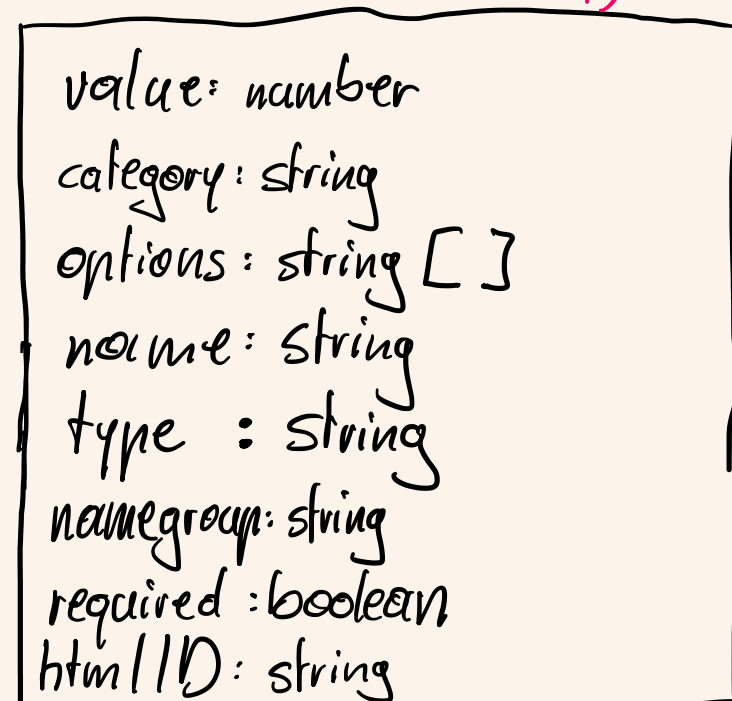 value: number
category: string
options: string []
name: string
type : string
namegroup: string
required : boolean
htmlID: string